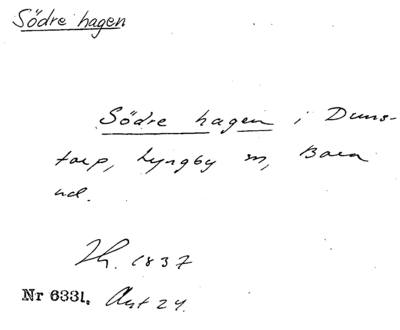 Södre hagen
Södre hagen i Duns-
torp, Lyngby sn, Bara
hd.
Th. 1837
Nr 6331. Akt 24.